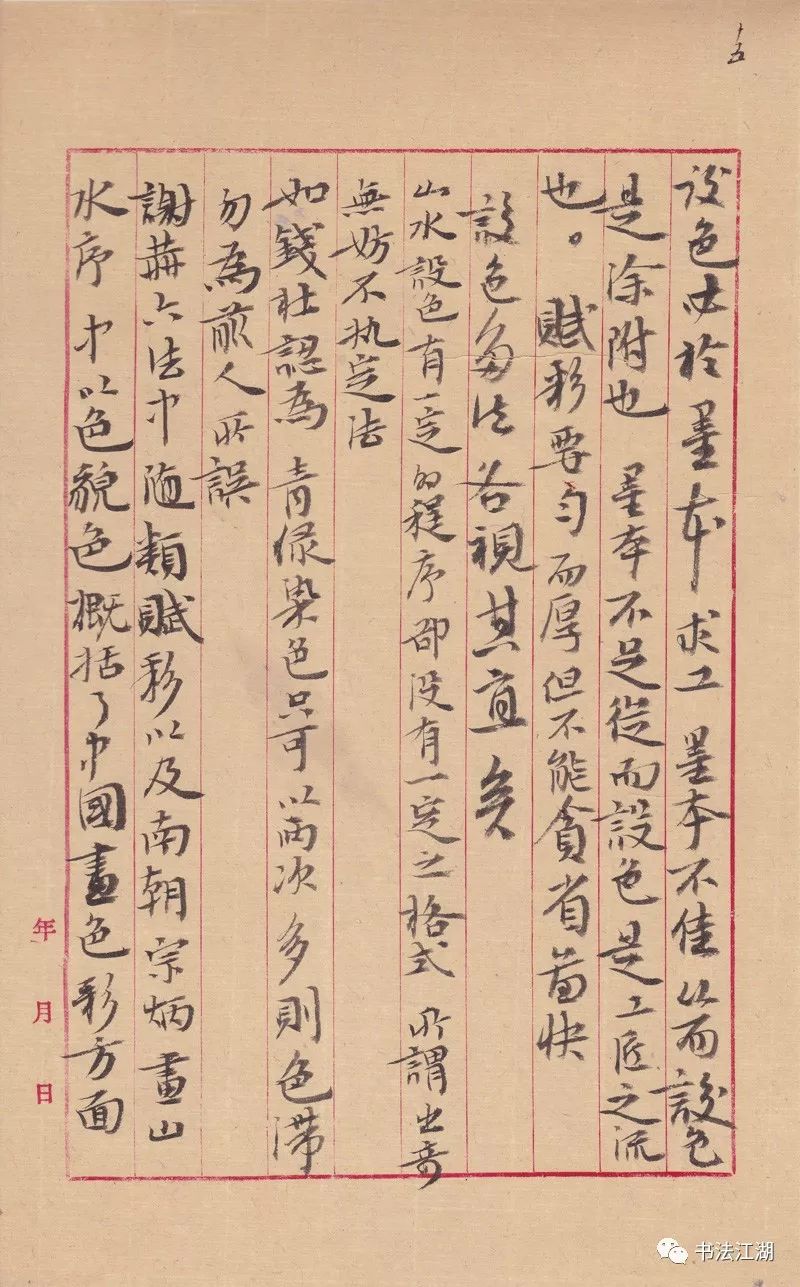 十五
設色必於墨本求工 墨本不佳從而設色
是涂附也 墨本不足從而設色是工匠之流
也。賦彩要匀而厚但不能貪省苗快
設色多法各視其宜矣
山水設色有一定的程序卻没有一定之格式 所謂出奇
無妨不执定法
如錢杜認為 青绿染色只可以兩次多則色滯
勿為前人所誤
謝赫六法中隨類賦彩以及南朝宗炳畫山
水序中以色貌色概括了中國畫色彩方面
年月日
书法江湖